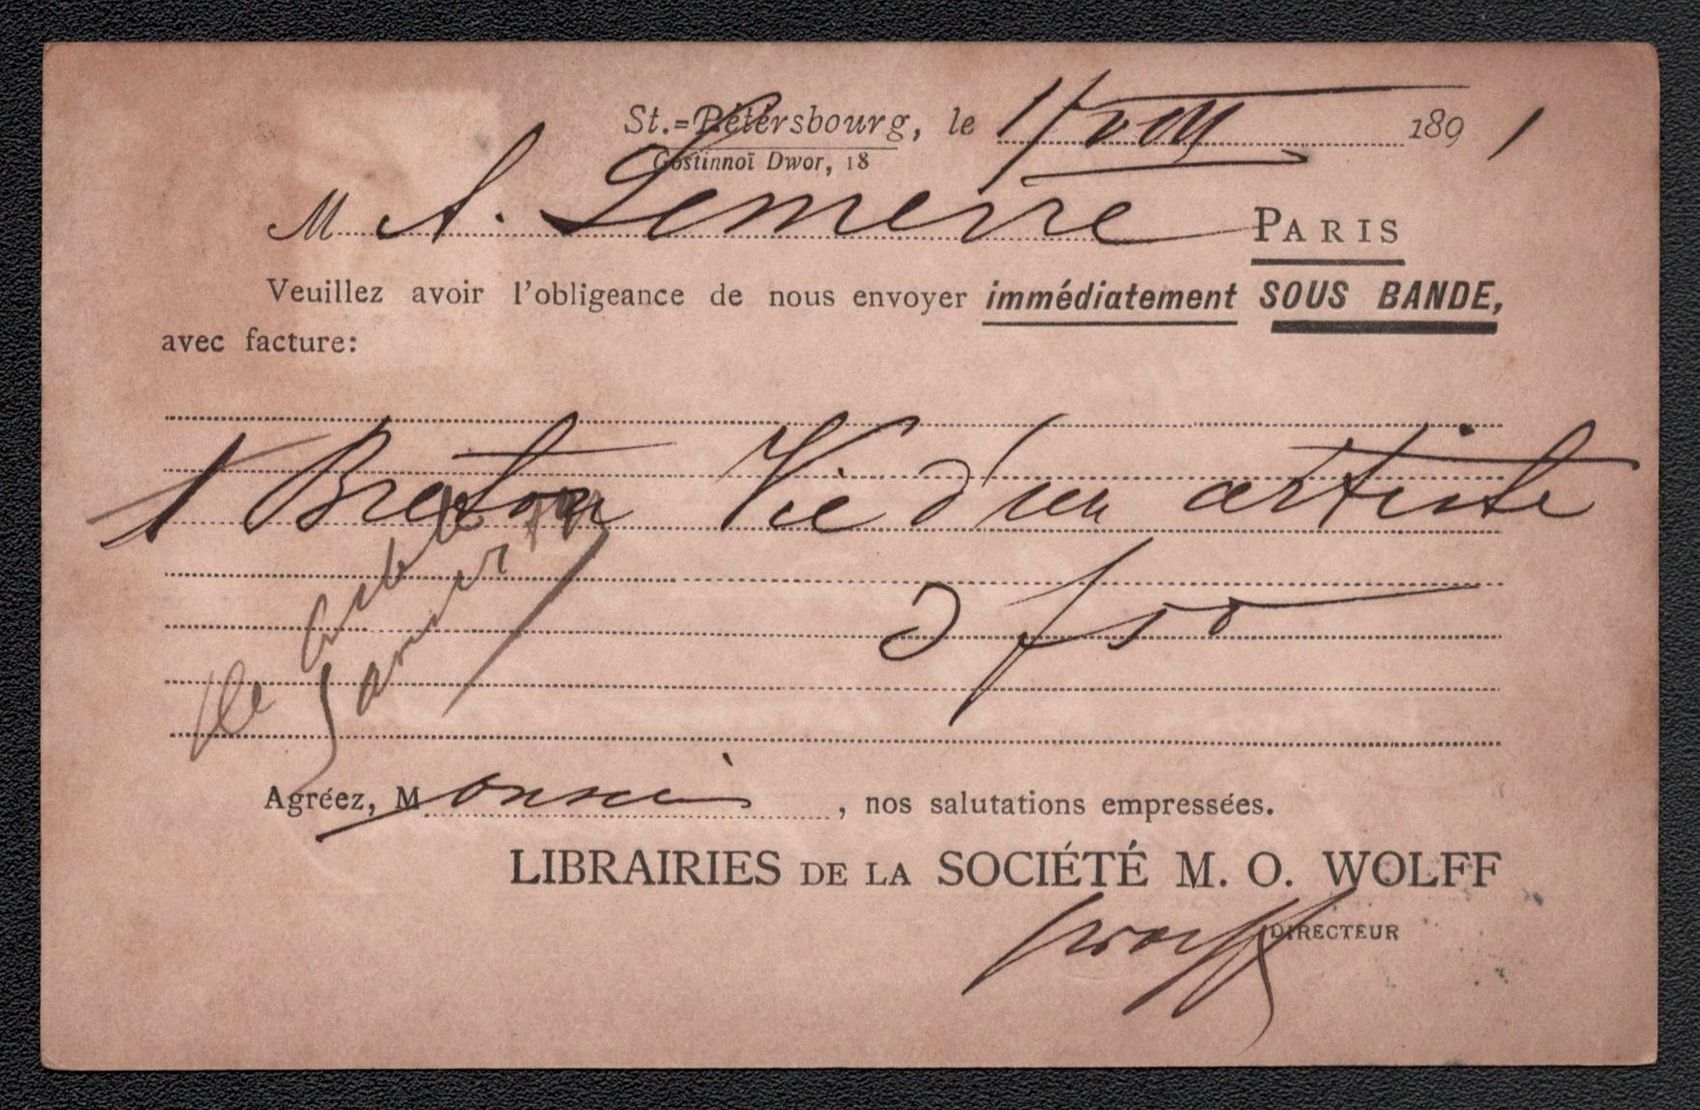 St.=Pétersbourg, le 1/VIII 1891
Gostinnoï Dwor, 18
M A. Lemerre PARIS
Veuillez avoir l'obligeance de nous envoyer immédiatement SOUS BANDE,
avec facture:
1 Breton Vie d'un artiste
3 f 50
Agréez, Monsieur, nos salutations empressées.
LIBRAIRIES DE LA SOCIÉTÉ M. O. WOLFF
Wolff
DIRECTEUR